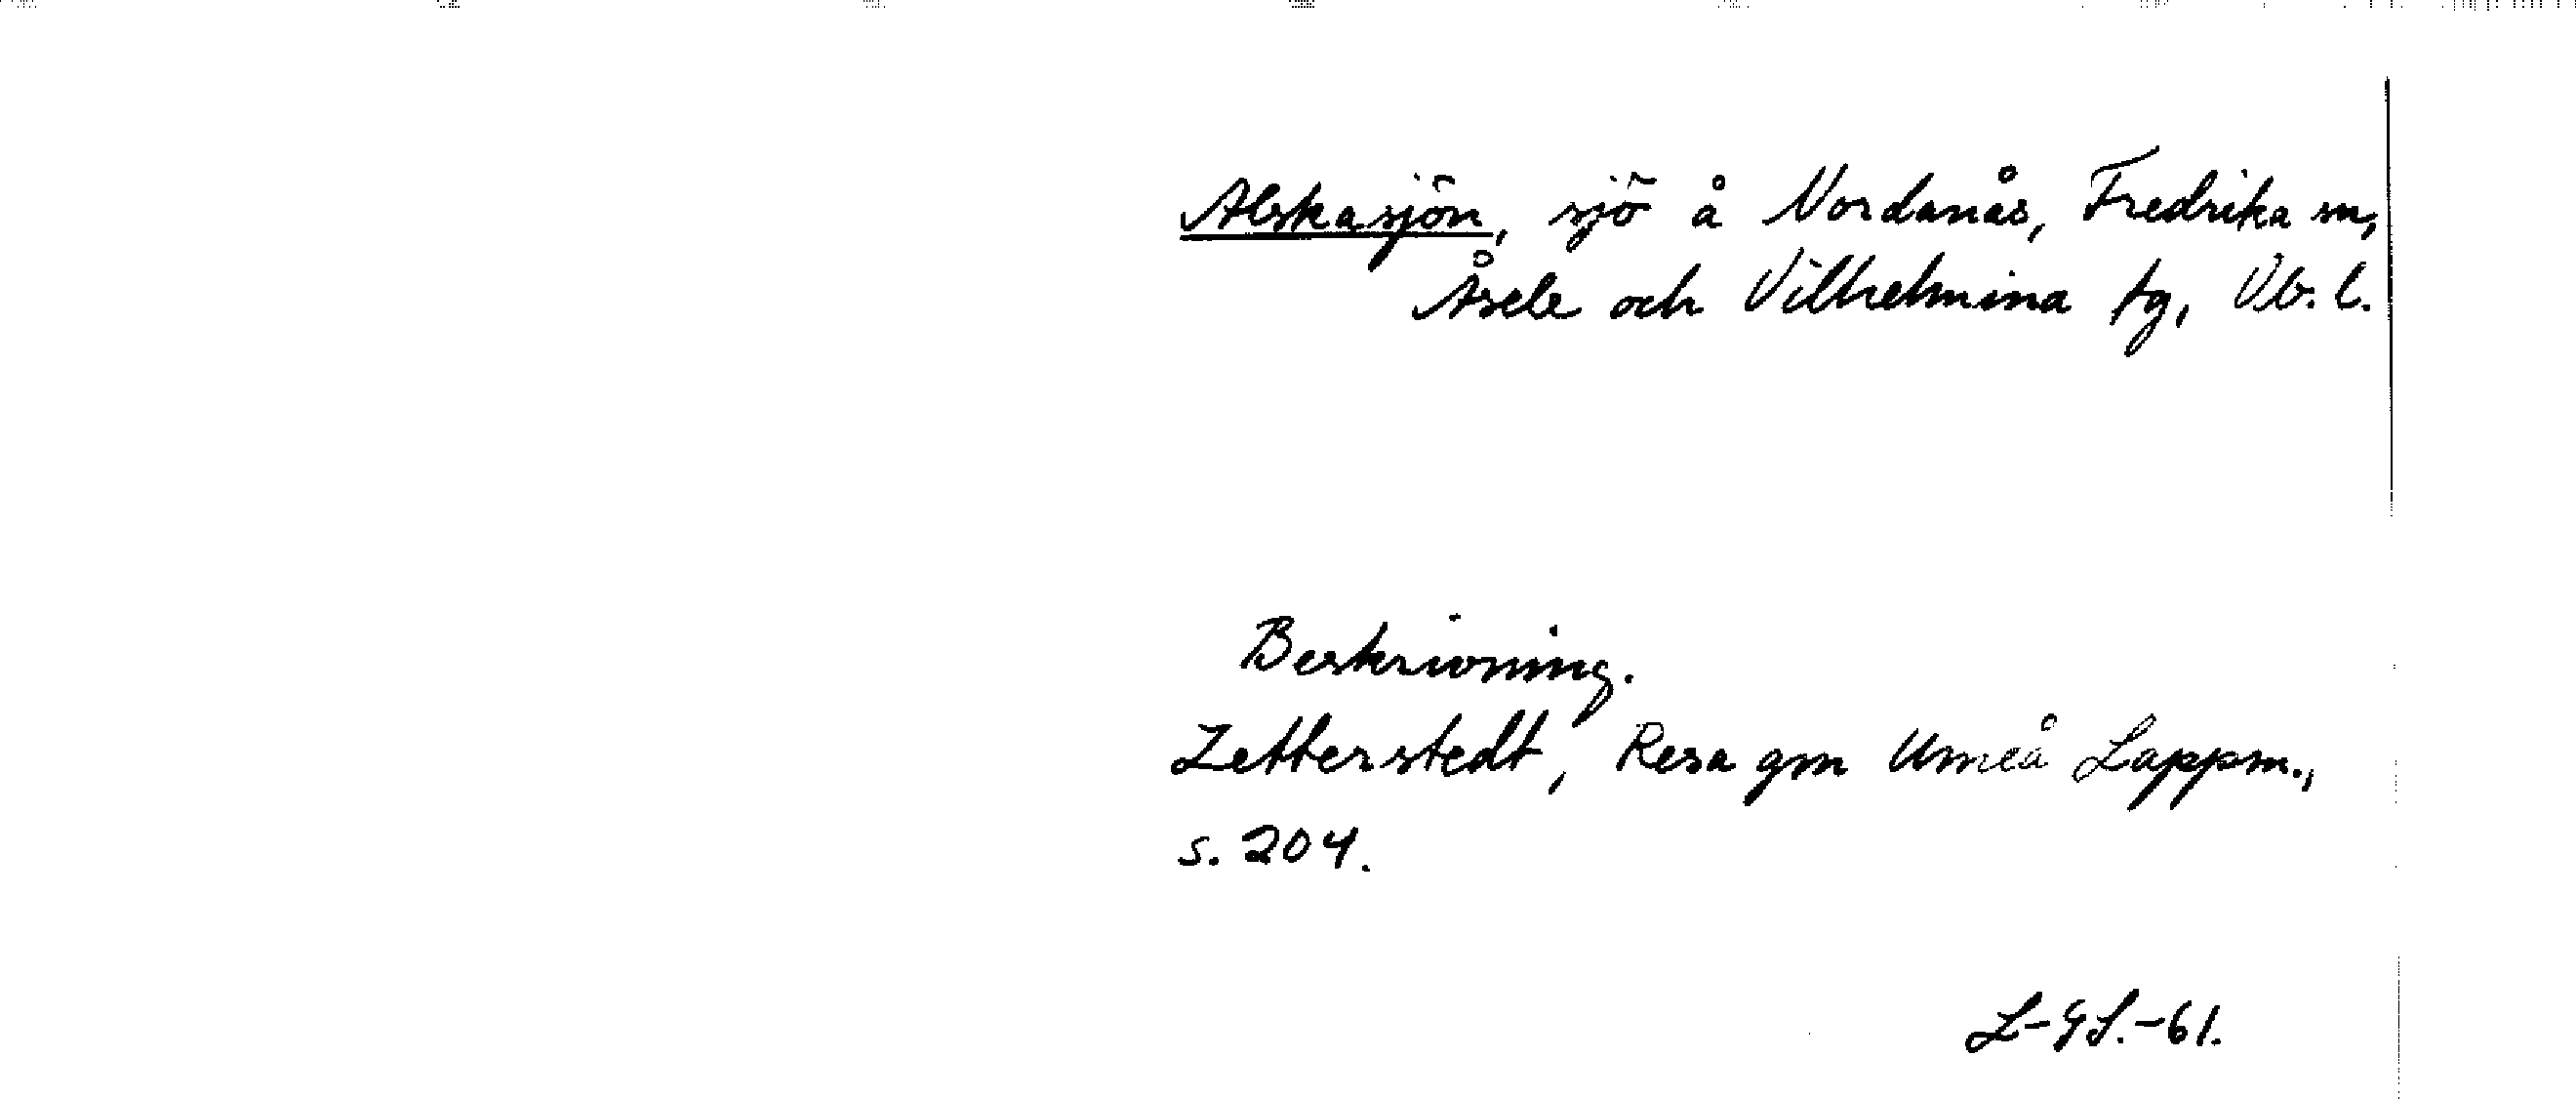 Abskasjön, sjö å Nordanås, Fredrika sn,
Åsele och Vilhelmina tg, Vb. l.
Beskrivning.
Zetterstedt, Resa gm Umeå Lappm.,
s. 204.
L-GS.-61.